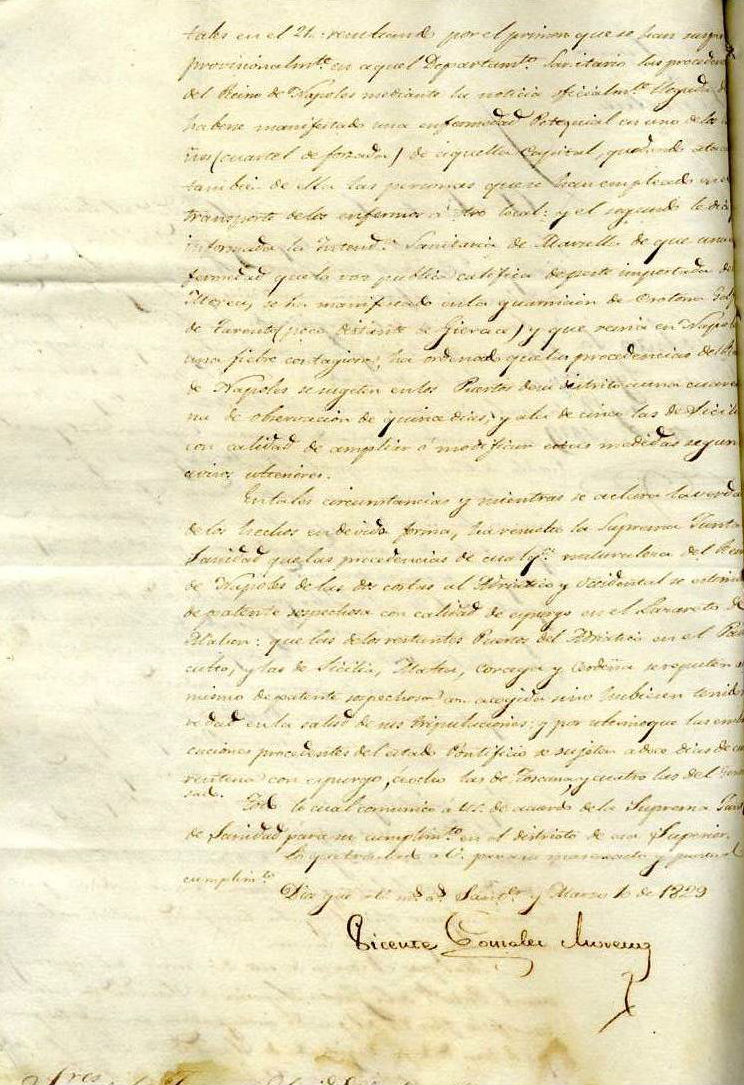 tales en el 21: resultando por el primero que se han
provisionalmte. en aquel Departamto. Sanitario las proceden
del Reino de Napoles mediante la noticia oficialmte. llegada d
haberse manifestado una enfermedad Petequial en uno de los
(cuartel de forzados) de aquella Capital, quedando ataca
tambien de ella las personas que se han empleado en el
transporte de los enfermos á otro local: y el segundo
informada la Intenda. Sanitaria de Marsella de que una
fermedad que la voz publica califica de peste importada de
Morea, se ha manifestado en la guarnicion de Crotona
de Tarento (poco distante de Gierace) y que reina en Napol
una fiebre contagiosa; ha ordenado que las procedencias del
de Napoles se sugeten en los Puertos de su distrito a una cuaren
na de observacion de quince dias, y a la de cinco las de Sicili
con calidad de ampliar ó modificar estas medidas segun
avisos ulteriores.
En tales circunstancias y mientras se aclara la verda
de los hechos en devida forma, ha resuelto la Suprema Junta
Sanidad que las procedencias de cualqr. naturaleza del Rein
de Napoles de las dos costas al Adriatico y Occidental se
de patente sospechosa con calidad de espurgo en el Lazareto de
Mahon: que las de los restantes Puertos del Adriatico en el
y las de Sicilia, Malta, Corcega y Cerdeña se reputen a
mismo de patente sospechosa sino hubiesen tenid
vedad en la salud de sus tripulaciones; y por ultimo que las emb
caciones procedentes del estado Pontificio se sujetan a doce dias de cua
rentena con espurgo, a ocho las de Toscana, y cuatro las del
Todo lo cual comunico a V.S. de acuerdo de la Suprema Junt
de Sanidad para su cumplimto. en el distrito de esa Superior.
Lo que traslado a V. para su y puntual
cumplimto.
Dios gue. a V. ms. as. Santdr. y Marzo 1o. de 1829
Vicente Gonzalez Moreno
Sres.